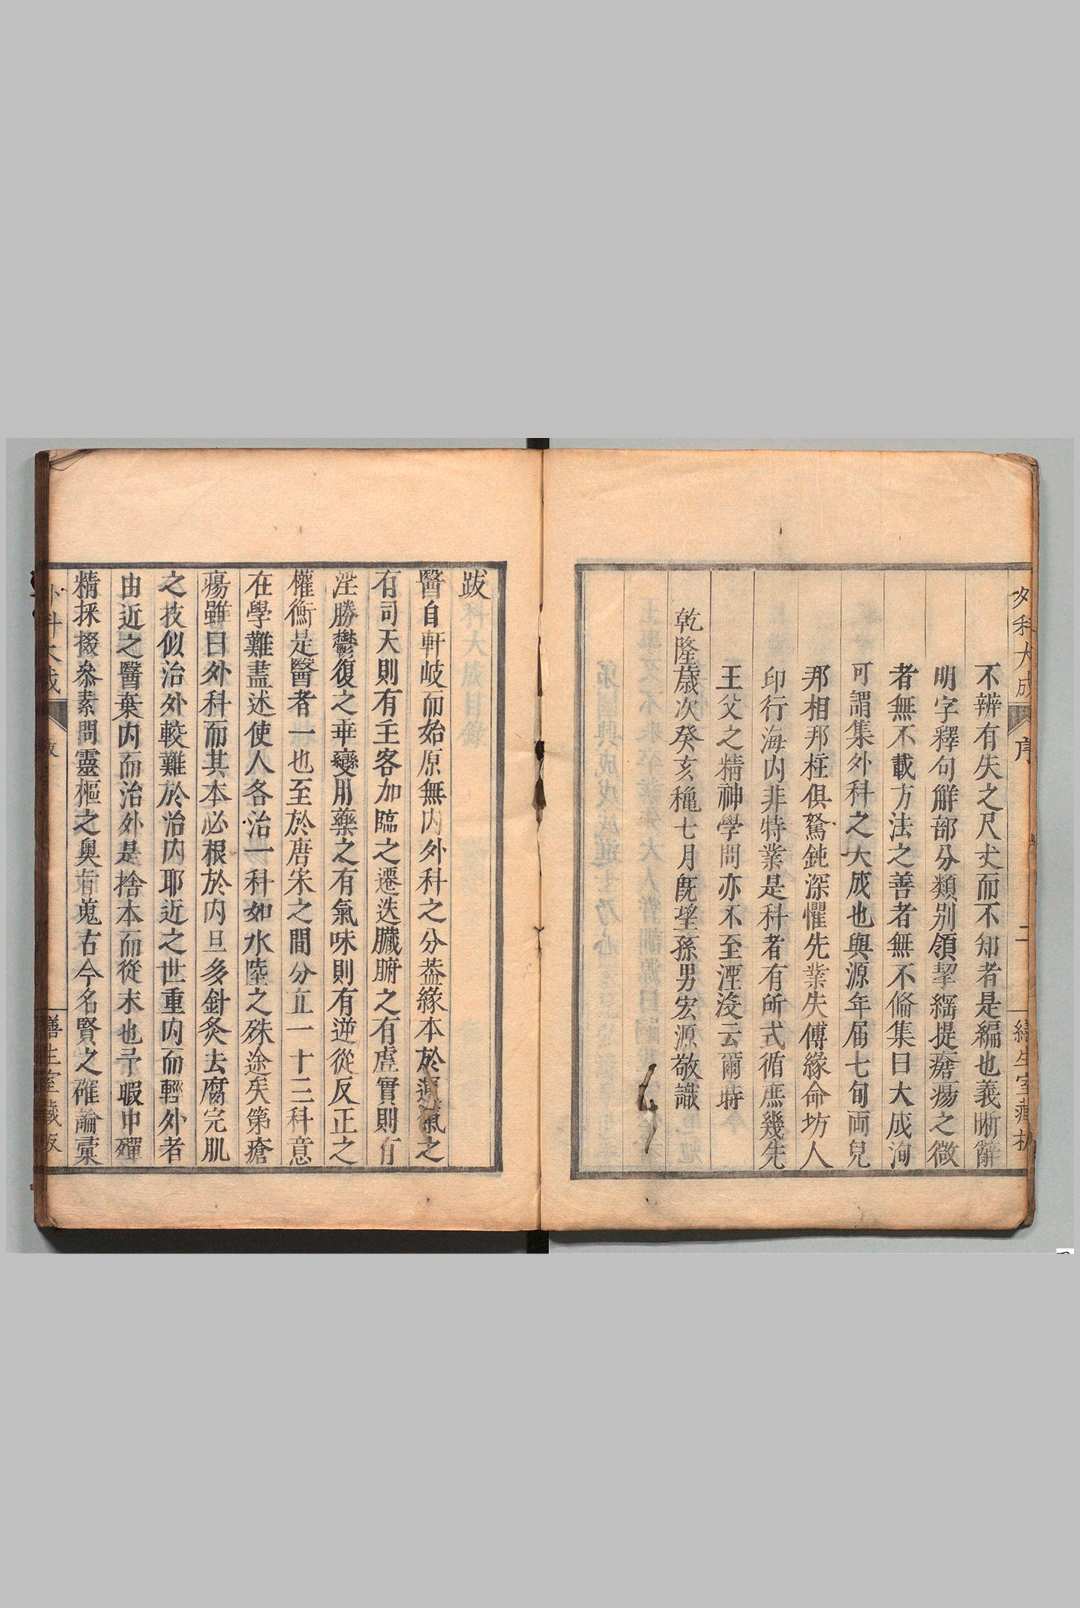 外科大成 序 二 繕生室藏板
不辨有失之尺丈而不知者是編也義晰辭
明字釋句觧部分類別領挈綱提瘡瘍之微
者無不載方法之善者無不僃集曰大成洵
可謂集外科之大成也與源年届七旬両兒
那相那枉俱駑鈍深懼先業失傳緣命坊人
印行海内非特業是科者有所式循庶幾先
王父之精神學問亦不至湮没云爾時
乾隆歳次癸亥龝七月旣望孫男宏源敬識
跋
醫自軒岐而始原無内外科之分葢緣本於運氣之
有司天則有主客加臨之遷迭臟腑之有虛實則有
淫勝鬱復之乖變用藥之有氣味則有逆從反正之
權衡是醫者一也至於唐宋之間分立一十三科意
在學難盡述使人各治一科如水陸之殊途矣第瘡
瘍雖曰外科而其本必根於内且多針灸去腐完肌
之技似治外較難於治内耶近之世重内而輕外者
由近之醫棄内而治外是捨本而從末也予暇中殫
精採掇叅素問靈樞之奥㫖蒐古今名賢之確論彙
外科大成 跋 繕生室藏板